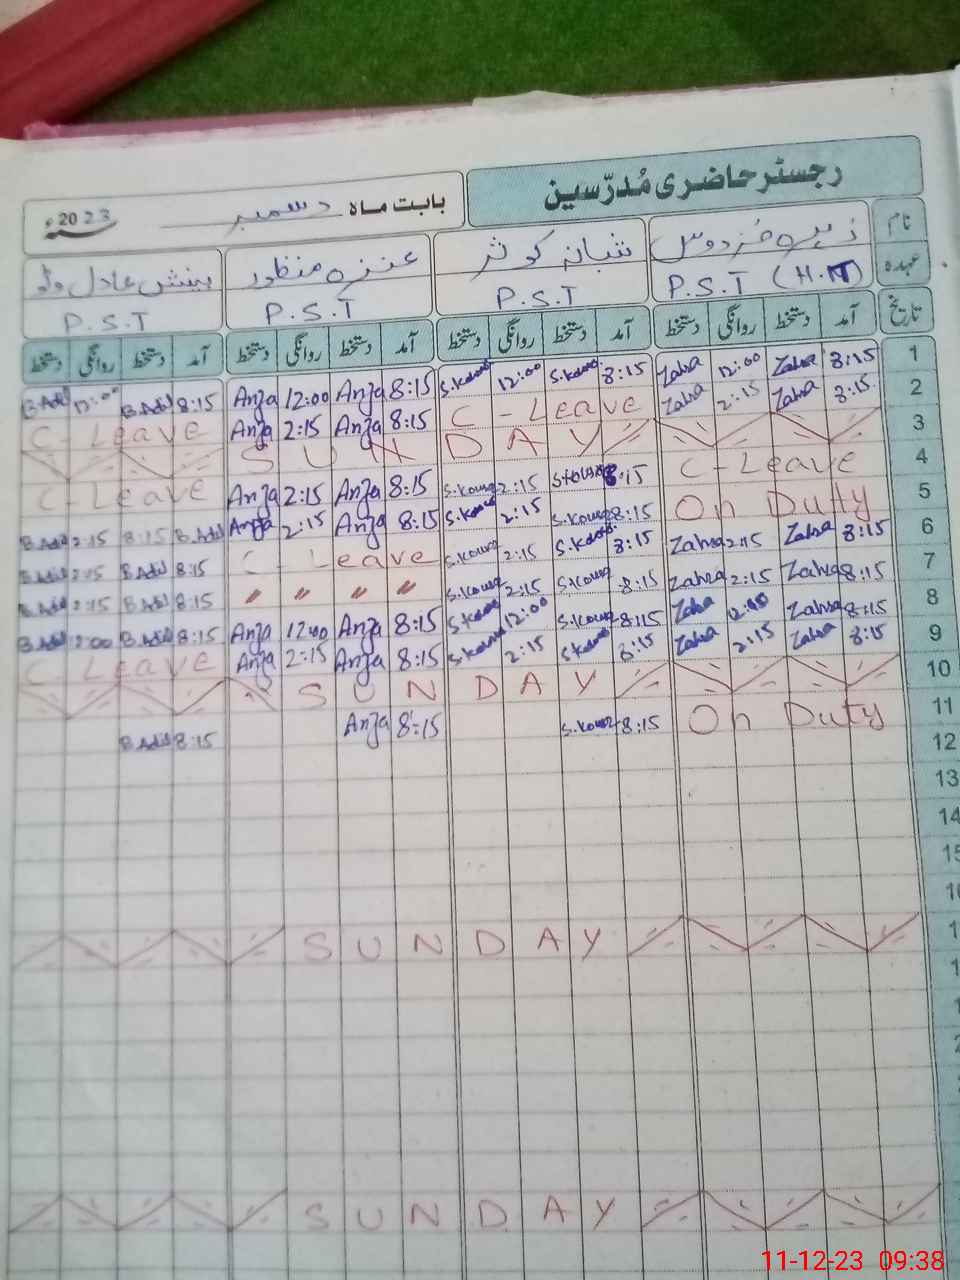 رجسٹر حاضری مُدرّسین
بابت ماہ دسمبر 2023ء
نام زہرہ فردوس شبانہ کوثر عنزہ منظور بینش عادل
عہدہ P.S.T (H.T) P.S.T P.S.T P.S.T
تاریخ آمد دستخط روانگی دستخط آمد دستخط روانگی دستخط آمد دستخط روانگی دستخط آمد دستخط روانگی دستخط
B.Adil 12:00 B.Adil 8:15 Anza 12:00 Anza 8:15 S.Kousar 12:00 S.Kousar 8:15 Zahra 12:00 Zahra 8:15 1
C-Leave Anza 2:15 Anza 8:15 C-Leave Zahra 2:15 Zahra 8:15 2
SUNDAY 3
C-Leave Anza 2:15 Anza 8:15 S.Kousar 2:15 S.Kousar 8:15 C-Leave 4
B.Adil 2:15 8:15 B.Adil Anza 2:15 Anza 8:15 S.Kousar 2:15 S.Kousar 8:15 On Duty 5
B.Adil 2:15 B.Adil 8:15 C-Leave S.Kousar 2:15 S.Kousar 8:15 Zahra 2:15 Zahra 8:15 6
B.Adil 2:15 B.Adil 8:15 〃 〃 〃 〃 S.Kousar 2:15 S.Kousar 8:15 Zahra 2:15 Zahra 8:15 7
B.Adil 12:00 B.Adil 8:15 Anza 12:00 Anza 8:15 S.Kousar 12:00 S.Kousar 8:15 Zahra 12:00 Zahra 8:15 8
C-Leave Anza 2:15 Anza 8:15 S.Kousar 2:15 S.Kousar 8:15 Zahra 2:15 Zahra 8:15 9
SUNDAY 10
B.Adil 8:15 Anza 8:15 S.Kousar 8:15 On Duty 11
12
13
14
15
SUNDAY
SUNDAY
11-12-23 09:38